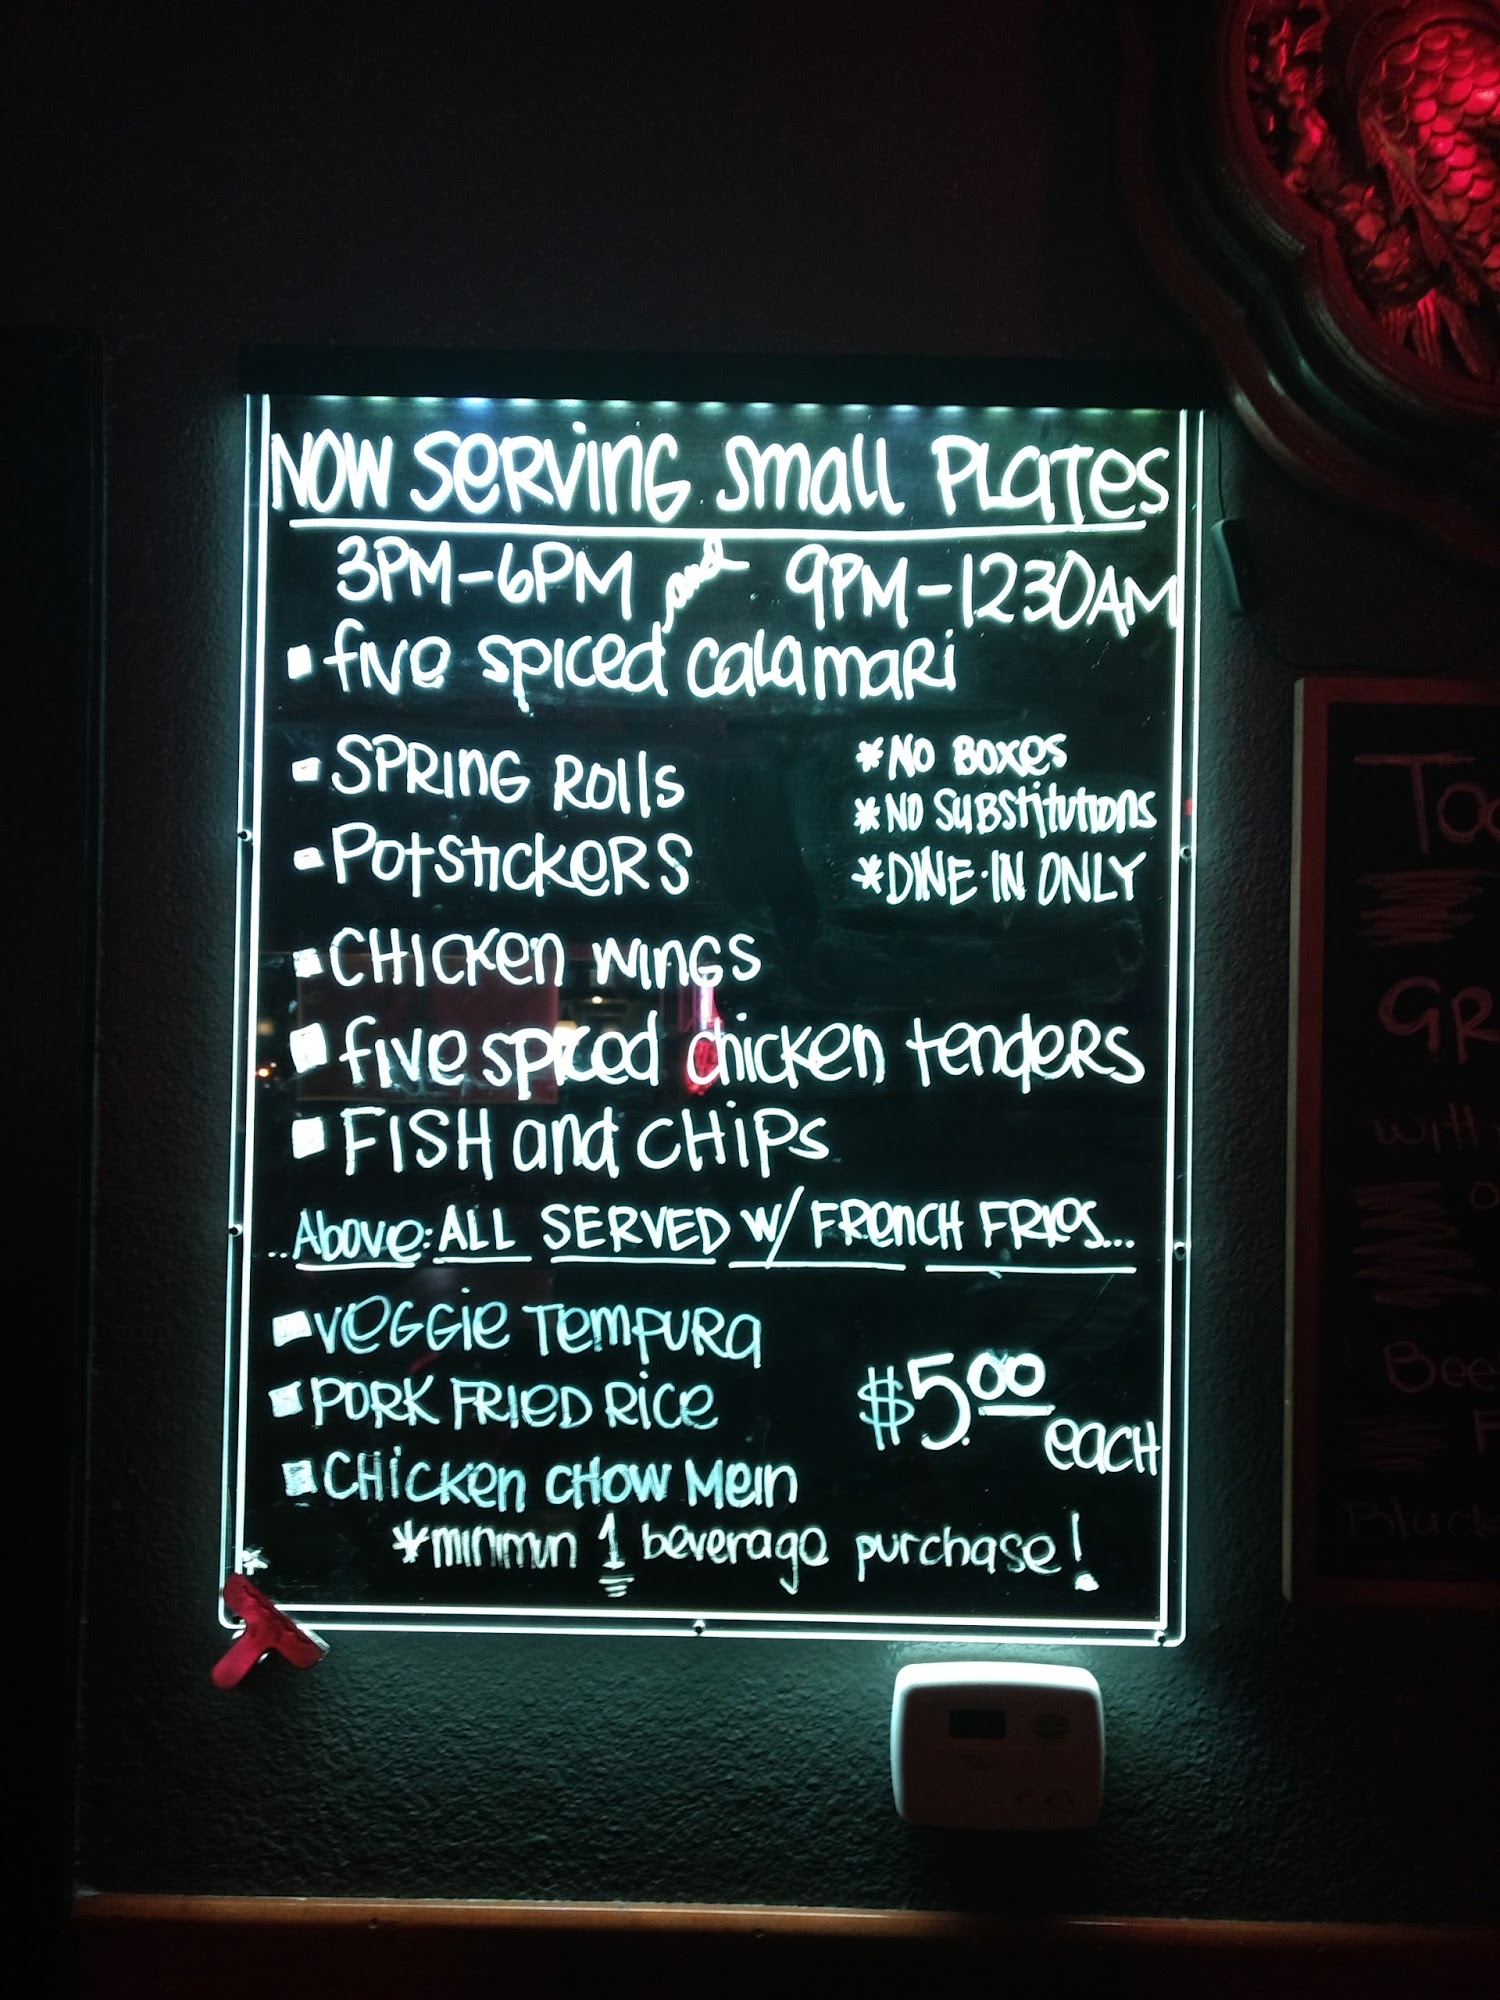 NOW SERVING SMALL PLATES
3PM-6PM and 9PM-1230AM
five spiced calamari
SPRING ROLLS
*NO BOXES
*NO SUBSTITUTIONS
POTSTICKERS
*DINE-IN ONLY
CHICKEN WINGS
five spiced chicken tenders
FISH and CHIPS
..Above: ALL SERVED W/ FRENCH FRIES...
VEGGIE TEMPURA
PORK FRIED RICE
$5.00 each
CHICKEN CHOW MEIN
*minimun 1 beverage purchase!